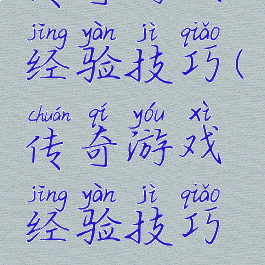 jīng yàn jì qiǎo
经验技巧(
chuán qí yóu xì
传奇游戏
jīng yàn jì qiǎo
经验技巧